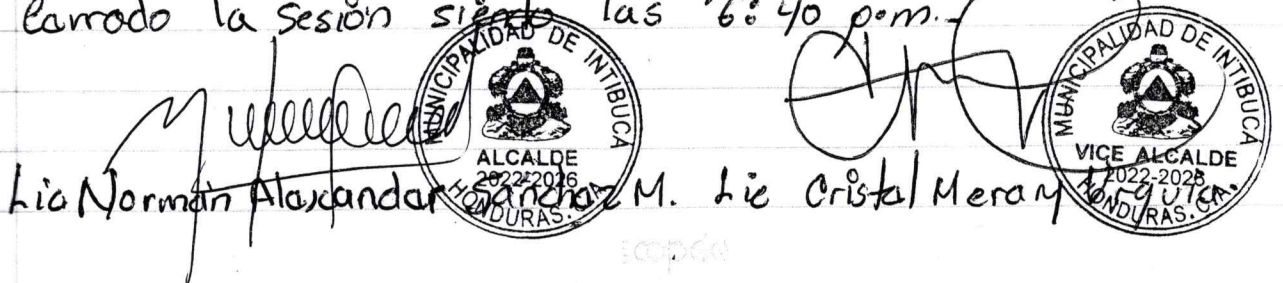 Carrado la Sesión siendo las 6:40 p.m.-
MUNICIPALIDAD DE INTIBUCA
ALCALDE
2022-2026
HONDURAS. C.A.
MUNICIPALIDAD DE INTIBUCA
VICE ALCALDE
2022-2026
HONDURAS. C.A.
Lic Norman Alaxandar Sánchaz M. Lic Cristal Meray